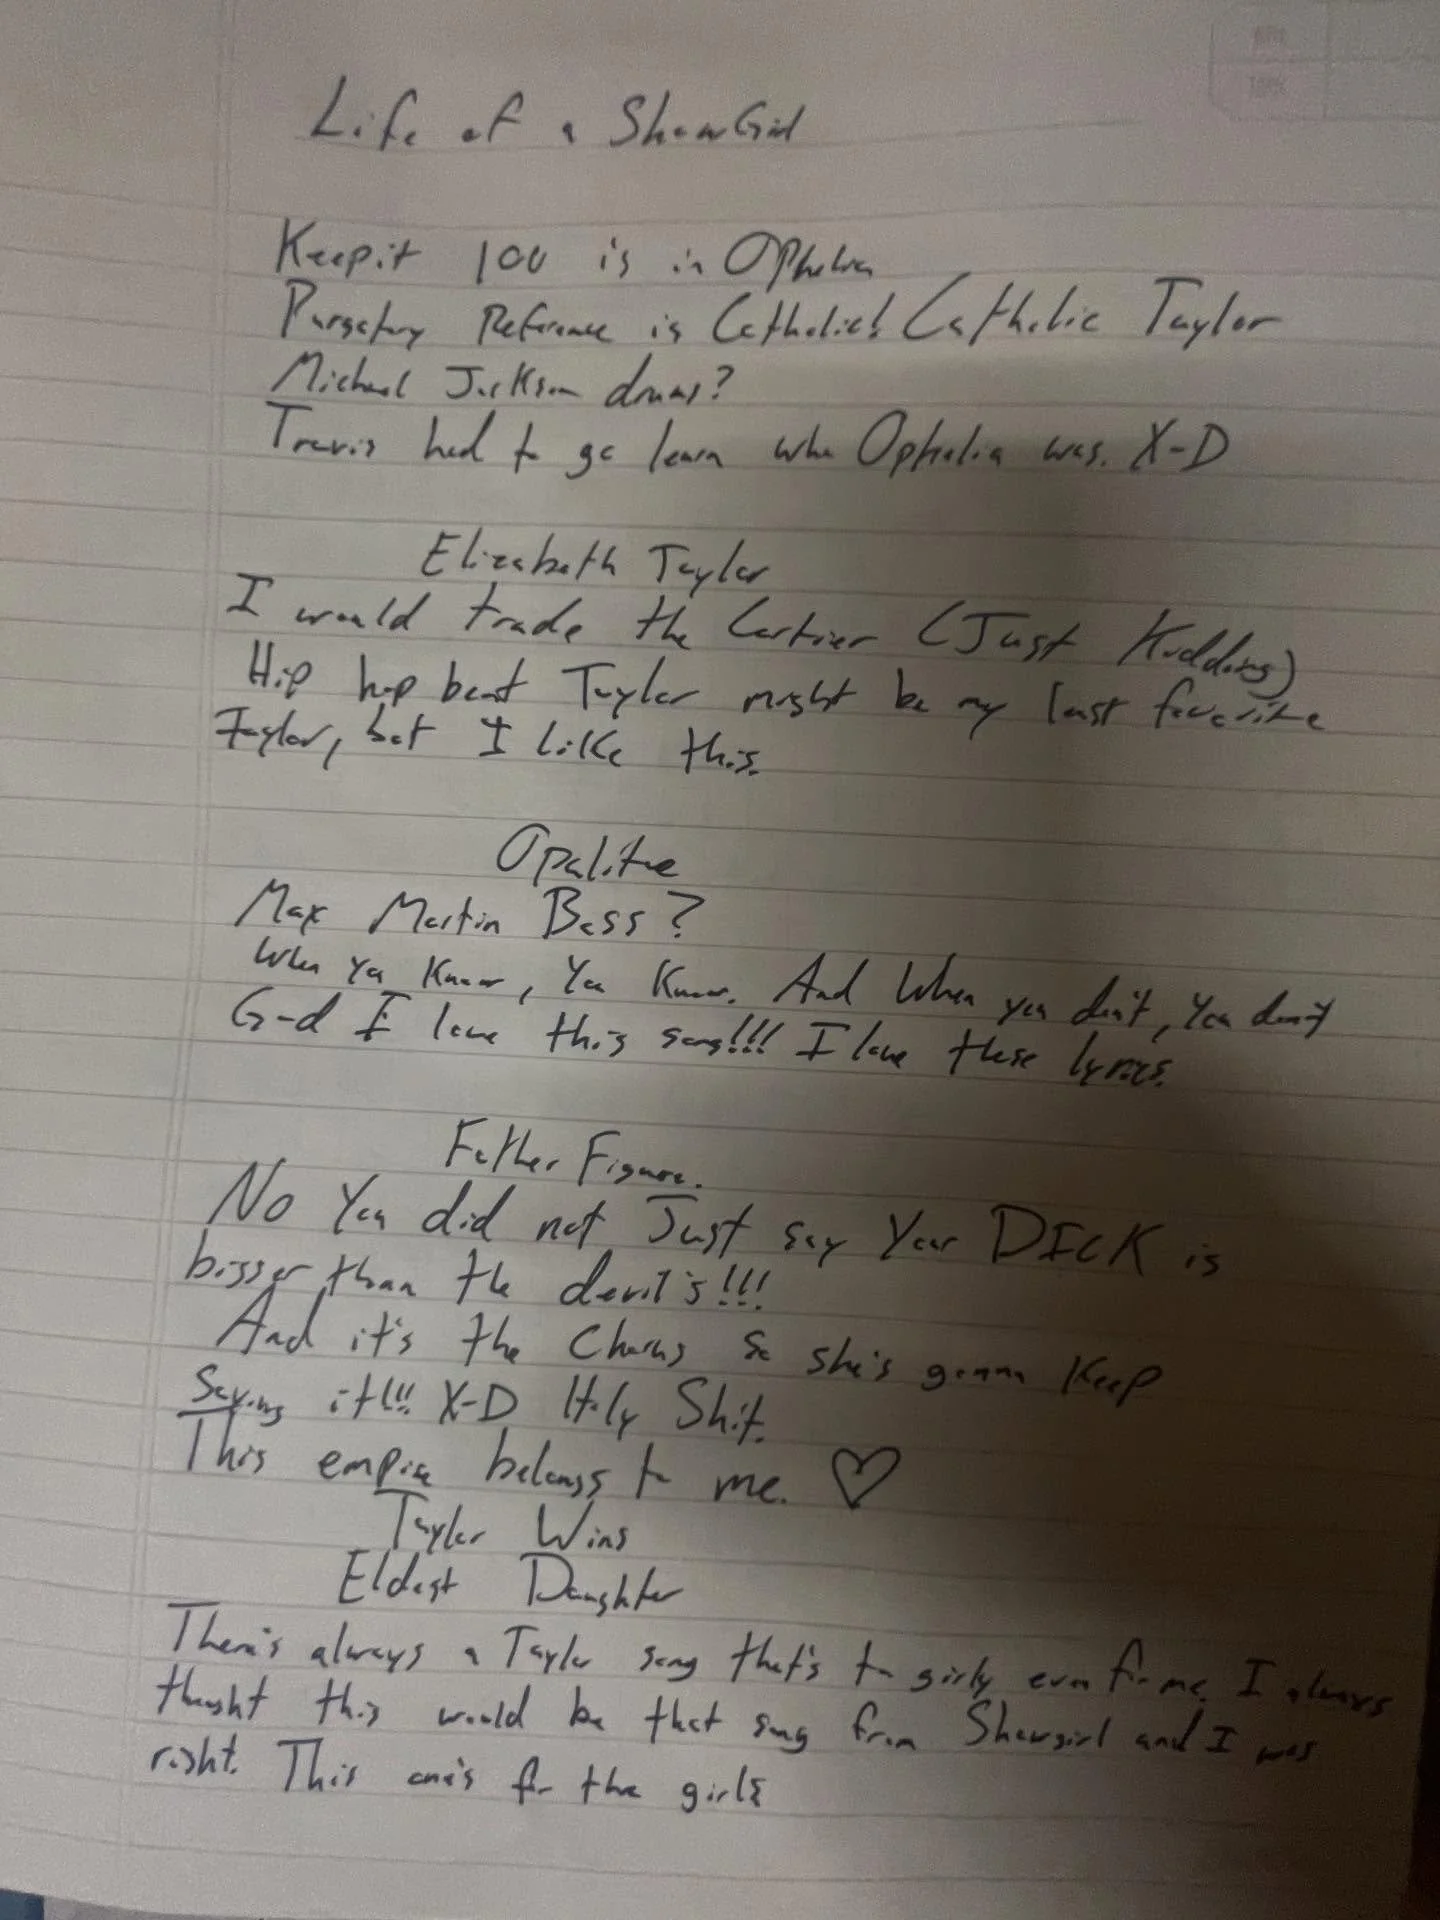 Life of a ShowGirl
Keep it 100 is in Ophelia
Purgatory Reference is Catholic! Catholic Taylor
Michael Jackson drums?
Travis had to go learn who Ophelia was. X-D
Elizabeth Taylor
I would trade the Cartier (Just Kidding)
Hip hop beat Taylor might be my last favorite
Taylor, but I like this.
Opalite
Max Martin Bass?
When you Know, You Know. And When you don't, you don't
G-d I love this song!!! I love these lyrics.
Father Figure.
No You did not Just say Your DICK is
bigger than the devil's!!!
And it's the Chorus so she's gonna Keep
Saying it!!! X-D Holy Shit.
This empire belongs to me. ♡
Taylor Wins
Eldest Daughter
There's always a Taylor song that's to girly even for me. I always
thought this would be that song from Showgirl and I was
right. This one's for the girls